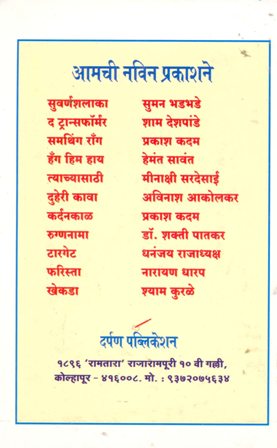 आमची नविन प्रकाशने
सुवर्णशलाका सुमन भडभडे
द ट्रान्सफॉर्मर शाम देशपांडे
समबिंग राँग प्रकाश कदम
हँग हिम हाय हेमंत सावंत
त्याच्यासाठी मीनाक्षी सरदेसाई
दुहेरी कावा अविनाश आकोलकर
कर्दनकाळ प्रकाश कदम
रुग्णनामा डॉ. शक्ती पातकर
टारगेट धनंजय राजाध्यक्ष
फरिस्ता नारायण धारप
खेकडा श्याम कुरळे
दर्पण पब्लिकेशन
१८९६ 'रामतारा' राजारामपुरी १० वी गल्ली,
कोल्हापूर - ४१६००८. मो. : ९३७२०७५६३४